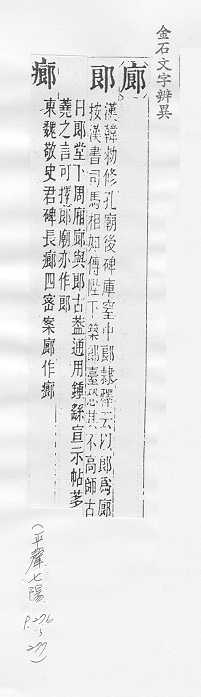 金石文字辨異
廊
郎 漢韓勑修孔廟後碑庫室中郎隸釋云以郎為廊
按漢書司馬相如傳陛下築郎臺恐其不高師古
曰郎堂下周廂廊與郎古葢通用鍾繇宣示帖芻
蕘之言可擇郎廟亦作郎
𤻂 東魏敬史君碑長𤻂四密案廊作𤻂
(平聲七陽
P.276
277)